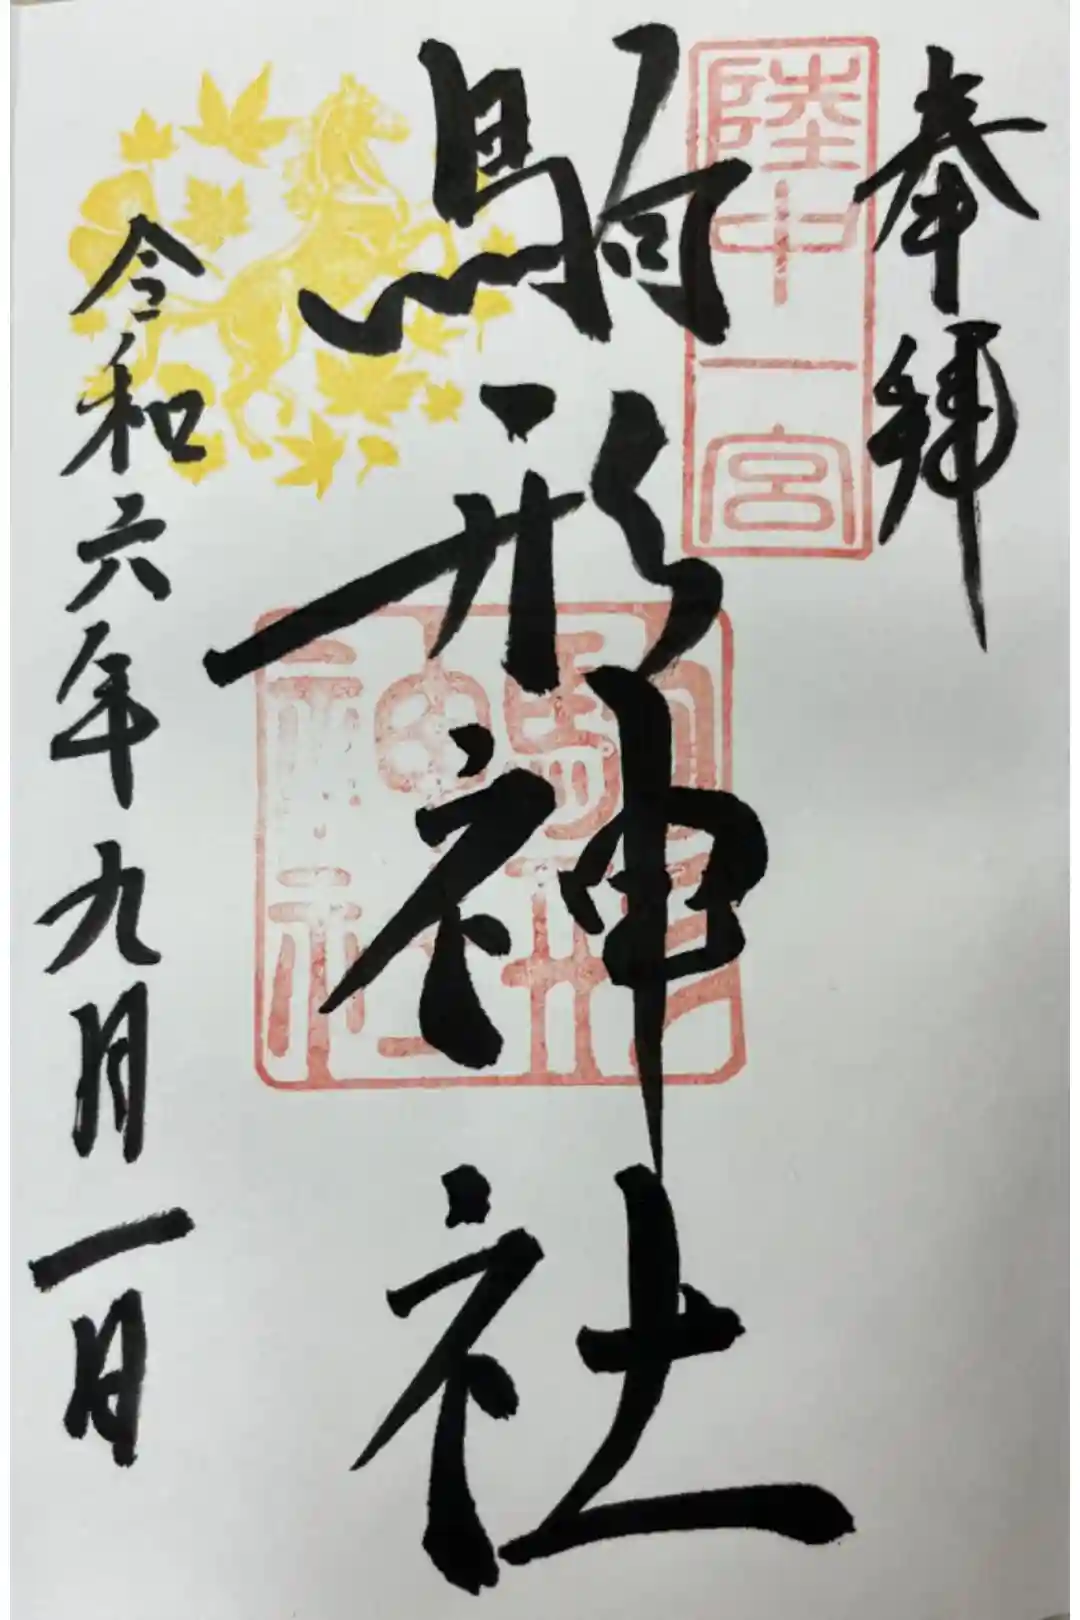 奉拜
陸中一宮
駒形神社
駒形神社
令和六年九月一日